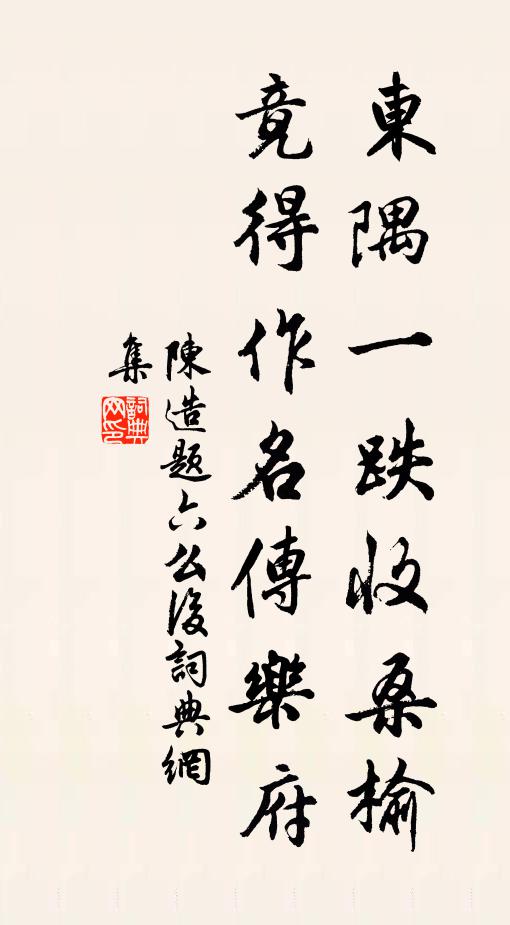 東隅一跌收桑榆
竟得作名傳樂府
陳造題六么後詞典網
集
詞典
网印